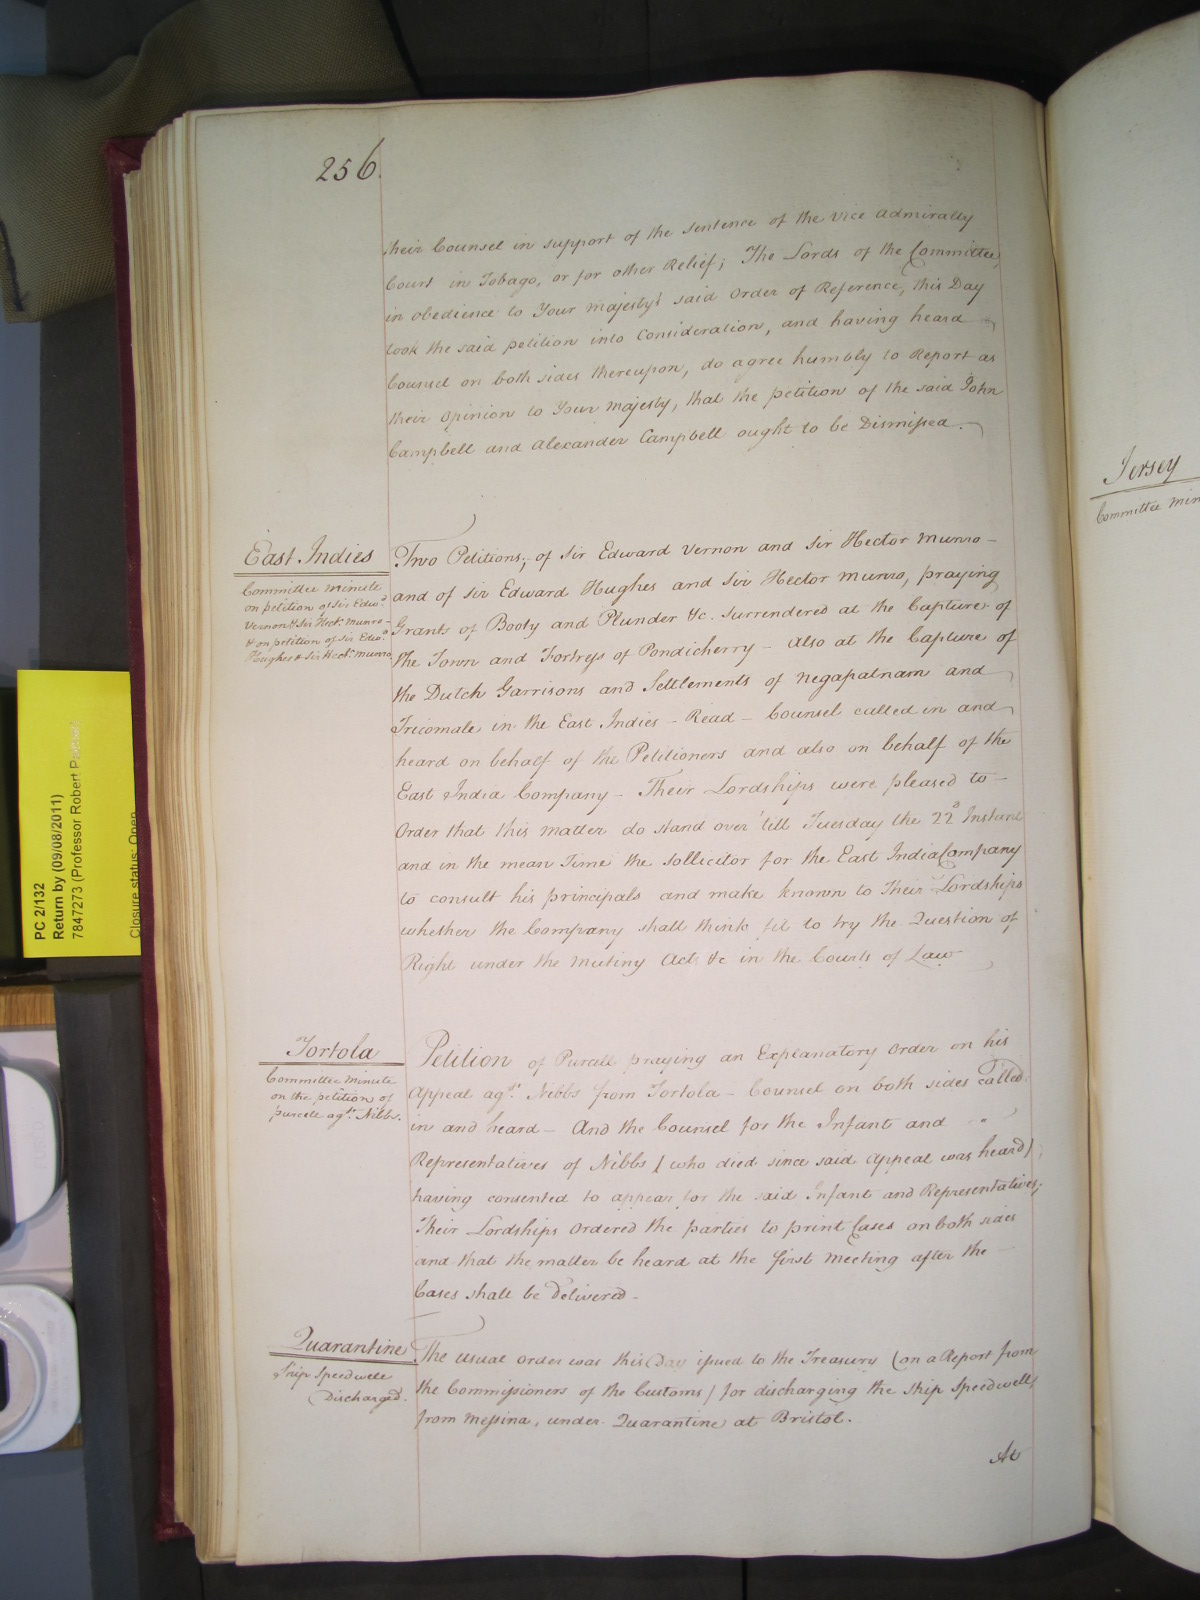 256.
their Counsel in support of the sentence of the Vice Admiralty
Court in Tobago, or for other Relief; The Lords of the Committee,
in obedience to Your Majesty's said Order of Reference, this Day
took the said petition into Consideration, and having heard
Counsel on both sides thereupon, do agree humbly to Report as
their Opinion to Your Majesty, that the petition of the said John
Campbell and Alexander Campbell ought to be Dismissed.
East Indies
Committee Minute
on petition of Sir Edwd.
Vernon & Sir Hectr. Munro-
& on petition of Sir Edwd.
Hughes & Sir Hectr. Munro
Two Petitions; of Sir Edward Vernon and Sir Hector Munro -
and of Sir Edward Hughes and Sir Hector Munro, praying
Grants of Booty and Plunder &c. Surrendered at the Capture of
the Town and Fortress of Pondicherry - also at the Capture of
the Dutch Garrisons and Settlements of Negapatnam and
Tricomale in the East Indies - Read - Counsel called in and
heard on behalf of the Petitioners and also on behalf of the
East India Company - Their Lordships were pleased to -
Order that this matter do stand over 'till Tuesday the 22d Instant
and in the mean Time the Sollicitor for the East India Company
to consult his principals and make known to Their Lordships
whether the Company shall think fit to try the Question of
Right under the Mutiny Act &c in the Courts of Law
Tortola
Committee Minute
on the petition of
purcell agst. Nibbs.
Petition of Purcell praying an Explanatory Order on his
Appeal agst. Nibbs from Tortola - Counsel on both sides called
in and heard - And the Counsel for the Infant and "
Representatives of Nibbs (who died since said Appeal was heard)
having consented to appear for the said Infant and Representatives;
Their Lordships Ordered the parties to print Cases on both sides
and that the matter be heard at the first Meeting after the
Cases shall be delivered -
Quarantine
Ship Speedwell
Discharged.
The usual Order was this Day issued to the Treasury (on a Report from
the Commissioners of the Customs) for discharging the Ship Speedwell,
from Messina, under Quarantine at Bristol.
At
Jersey
Committee Min
PC 2/132
Return by (09/08/2011)
7847273 (Professor Robert
Closure status: Open